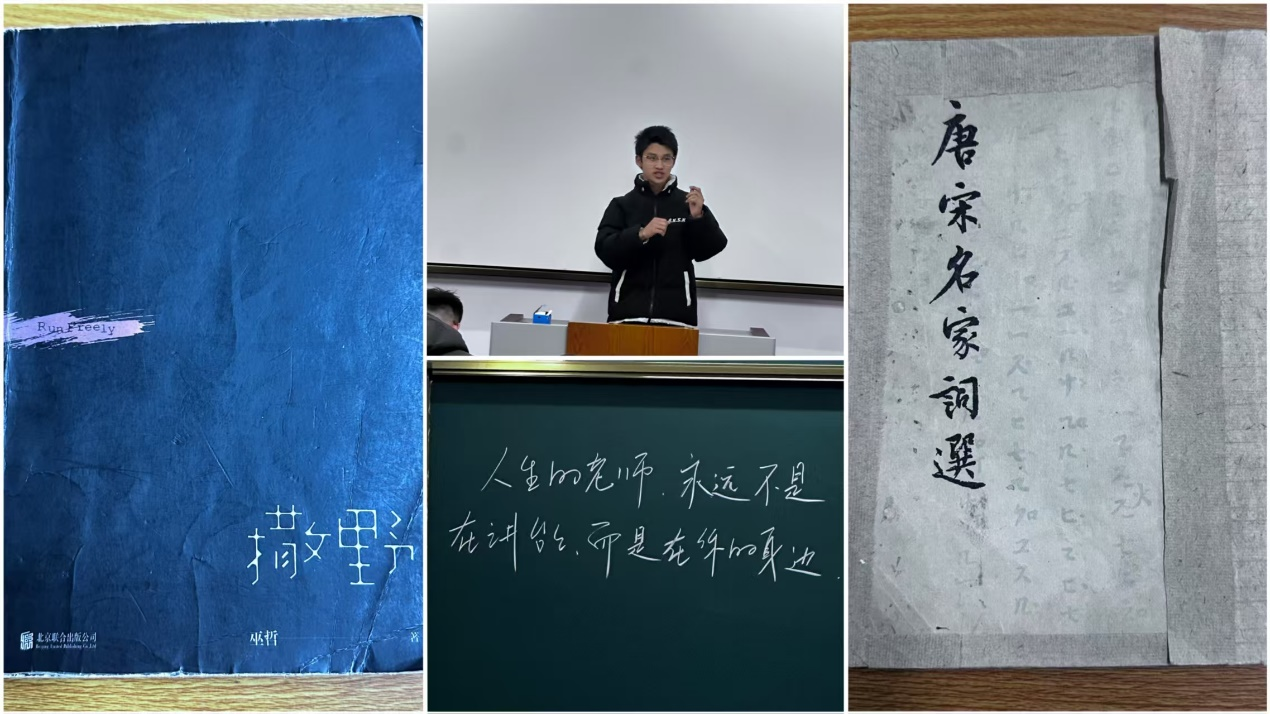 Run Freely
撒野
北京联合出版公司
Beijing United Publishing Co.,Ltd
巫哲 著
人生的老师、永远不是
在讲台、而是在你的身边.
唐宋名家詞選